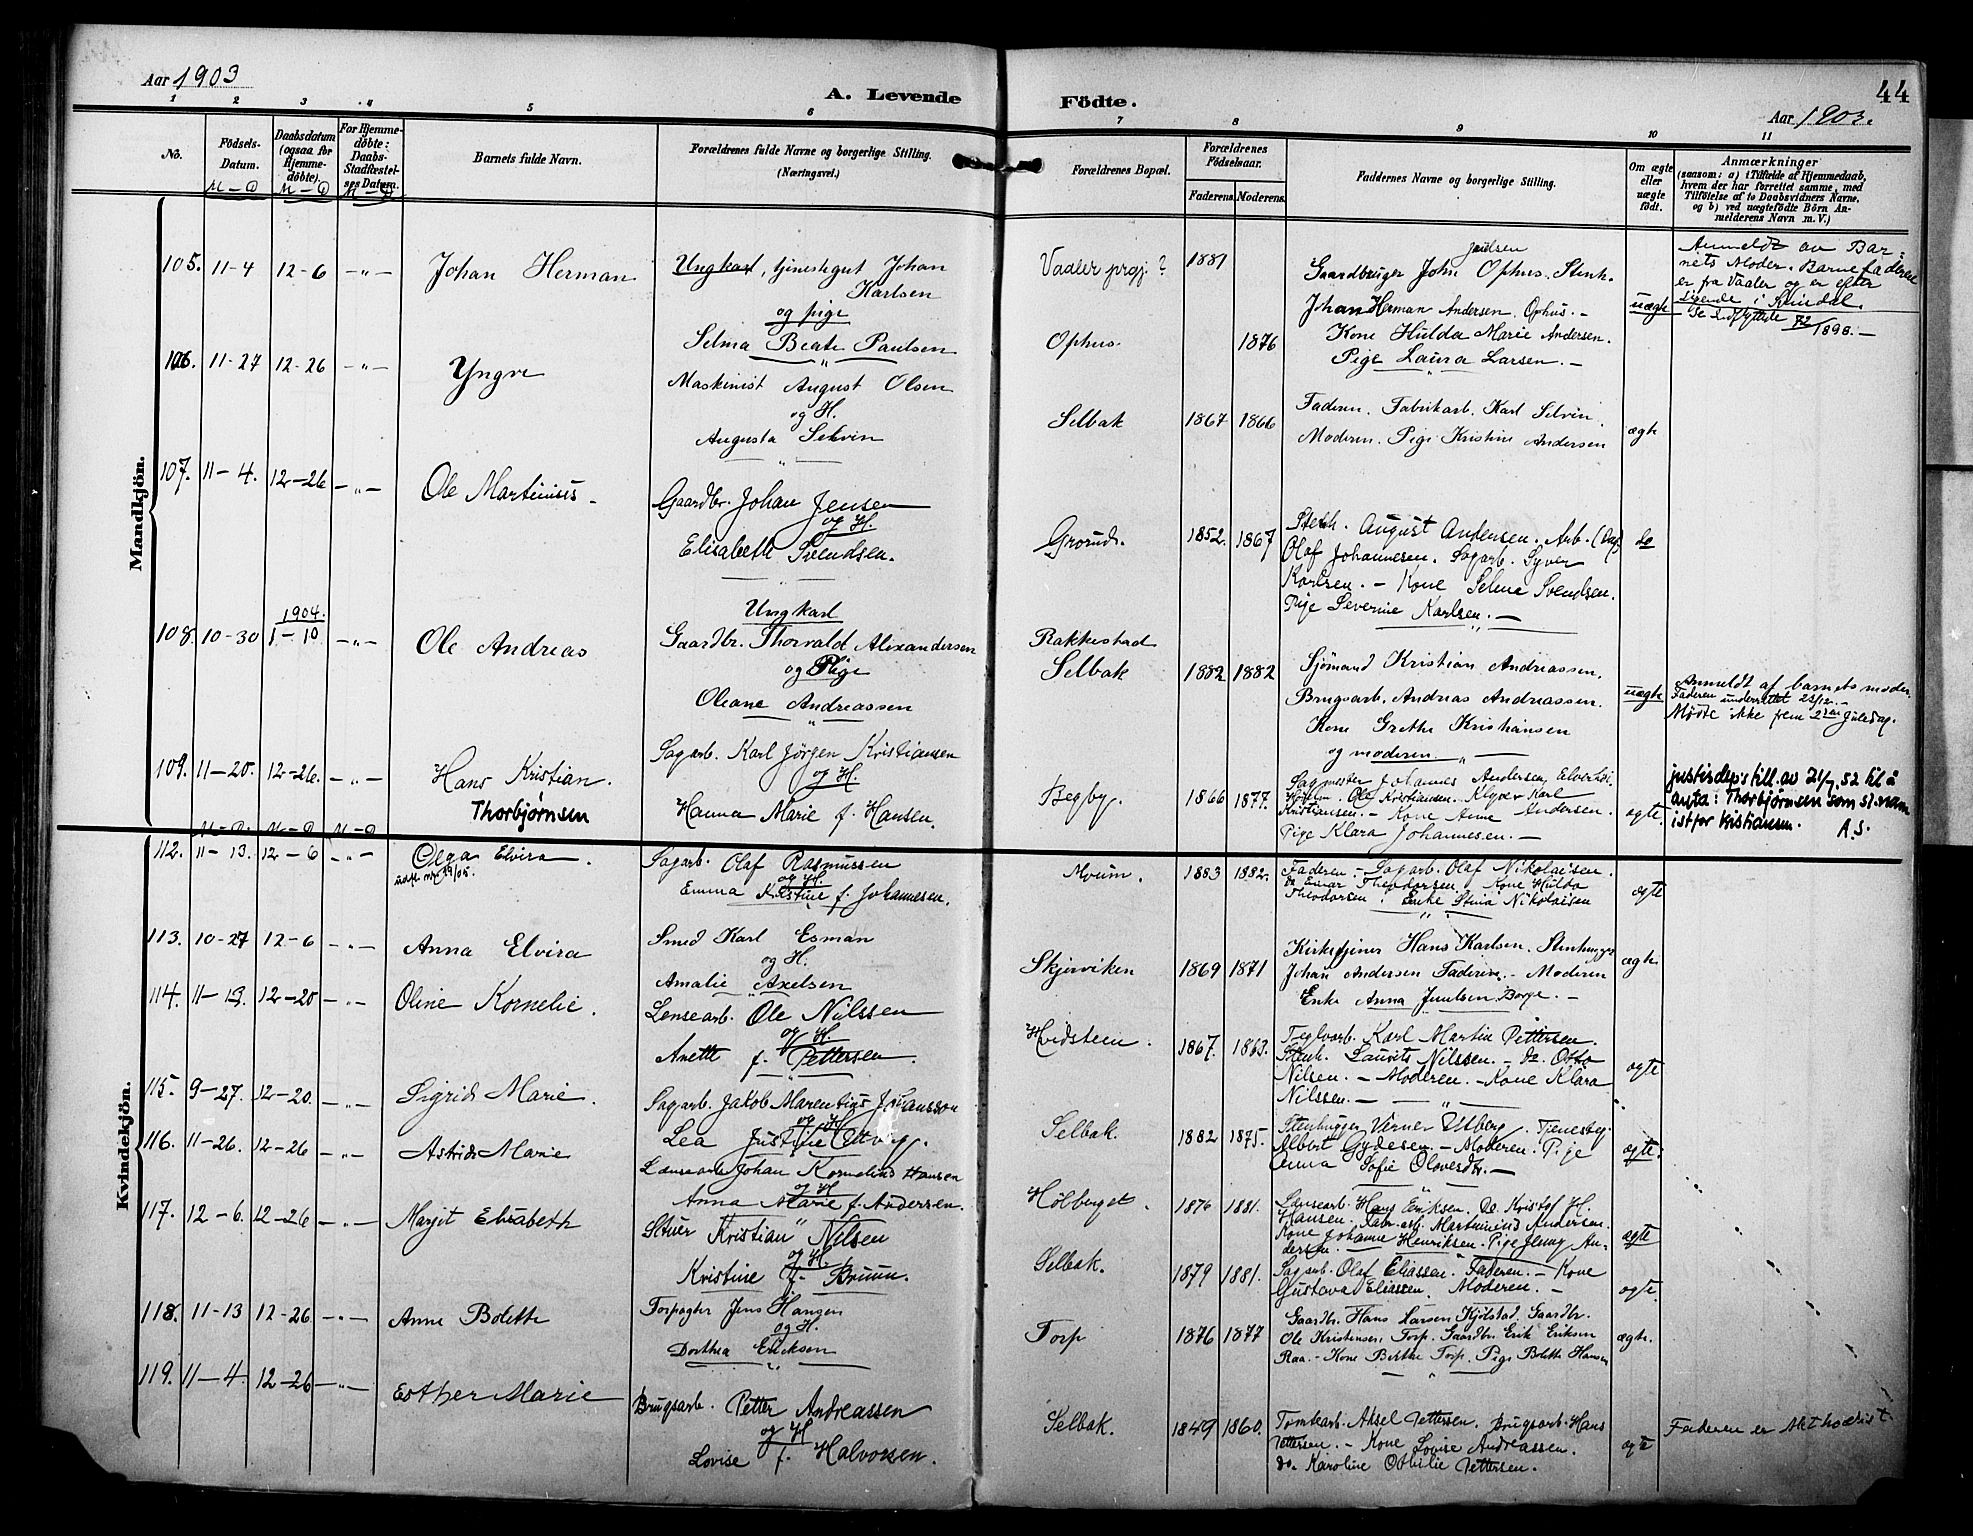 Aar 1903
A. Levende
Födte.
44
Aar 1903.
1 2 3 4 5 6 7 8 9 10 11
No.
Födsels-
Datum.
M - D
Daabsdatum
(ogsaa for
Hjemme-
döbte).
M - D
For Hjemme-
döbte:
Daabs-
Stadfæstel-
ses Datum.
M - D
Barnets fulde Navn.
Forældrenes fulde Navne og borgerlige Stilling.
(Næringsvei.)
Forældrenes Bopæl.
Forældrenes
Födselsaar.
Faderens. Moderens.
Faddernes Navne og borgerlige Stilling.
Om ægte
eller
uægte
födt.
Anmærkninger
(saasom: a) i Tilfælde af Hjemmedaab,
hvem der har forrettet samme, med
Tilföielse af to Daabsvidners Navne.
og b) ved uægtefödte Börn An-
melderens Navn m. V.)
Mandkjön.
105. 11-4 12-6 -"-
Johan Herman
Ungkarl, tjenestegut Johan
Karlsen
og pige
Selma Beate Paulsen
Vaaler prgj ?
Ophus.
1881
1876
Gaardbruger John Ophus. Stenh.
Johan Herman Andersen, Ophus. -
Kone Hulda Marie Andersen.
Pige Laura Larsen. -
uægte
Anmeldt av Bar-
nets Moder. Barnefaderen
er fra Vaaler og er efter
Se Udflyttede 72/1898. -
106. 11-27 12-26 -"-
Yngve
Maskinist August Olsen
og H.
Augusta Selvin
Selbak
1867 1866
Faderen. Fabrikarb. Karl Selvin.
Moderen. Pige Kristine Andersen
ægte
107. 11-4. 12-26 -"-
Ole Martinius -
Gaardbr. Johan Jensen
og H.
Elisabeth Svendsen.
Grorud.
1852. 1867
Stenh. August Andersen. Arb.
Olaf Johannesen. Sagarb. Syver
Karlsen. - Kone Selma Svendsen.
Pige Severine Karlsen. -
do
108. 10-30 1904. 1-10 -"-
Ole Andreas
Ungkarl
Gaardbr. Thorvald Alexandersen
og Pige
Oleane Andreassen
Rakkestad
Selbak
1882 1882
Sjömand Kristian Andreassen.
Brugsarb. Andreas Andreassen.
Kone Grethe Kristiansen
og moderen. -
uægte
Anmeldt af barnets moder.
Faderen underrettet 23/12. -
Mødte ikke frem 2den Juledag.
109. 11-20. 12-26. -"-
Hans Kristian.
Thorbjørnsen
Sagarb. Karl Jørgen Kristiansen
og H.
Hanna Marie f. Hansen.
Begby.
1866 1877.
Sagmester Johannes Andersen,
Ole Kristiansen. Karl
Kristiansen. - Kone Anne Andersen.
Pige Klara Johannesen. -
ægte.
justisdep's till. av 21/7. 52 til å
anta: Thorbjørnsen som sl.navn
istfor Kristiansen. A.S.
Kvindekjön.
M - D. M - D M - D
112. 11-13. 12-6 -"-
Olga Elvira.
Sagarb. Olaf Rasmussen
og H.
Emma Kristine f. Johannesen.
Moum.
1883 1882.
Faderen. - Sagarb. Olaf Nikolaisen.
do Einar Theodorsen. Kone Hulda
Theodorsen. Enke Stina Nikolaisen
ægte
113. 10-27 12-6 -"-
Anna Elvira
Smed Karl Esman
og H.
Amalie Axelsen
Skjærviken
1869 1871
Kirketjener Hans Karlsen. Stenhugger
Johan Andersen Faderen. - Moderen
Enke Anna Juulsen. Borge. -
ægte.
114. 11-13. 12-20 -"-
Oline Kornelie.
Lensearb. Ole Nilssen
og H.
Anette f. Pettersen.
Hvidsteen.
1867. 1863.
Teglvarb. Karl Martin Pettersen.
Stenh. Laurits Nilssen. - do. Otto
Nilsen. - Moderen. - Kone Klara
Nilssen. -
ægte
115. 9-27. 12-20. -"-
Sigrid Marie.
Sagarb. Jakob Marentius Johansson
og H
Lea Justine Utberg.
Selbak.
1882 1875.
Stenhugger Verner Utberg. Tjenesteg.
Albert Gydesen - Moderen. Pige
Anna Sofie Olavesdtr. -
ægte:
116. 11-26. 12-26 -"-
Astrid Marie
Lænsearb. Johan Kornelius Hansen
og H
Anna Marie f. Andersen.
Hølberget.
1876 1881.
Lænsearb. Hans Eriksen. Do. Kristof H.
Hansen. Fabr. arb. Martinius Andersen.
Kone Johanne Henriksen. Pige Jenny An-
dersen. -
ægte
117. 12-6. 12-26 -"-
Margit Elisabeth
Stuer Kristian Nilsen
og H
Kristine f. Bruun.
Selbak.
1879 1881.
Sagarb. Olaf Eliassen. Faderen. - Kone
Gustava Eliassen. Moderen. -
ægte.
118. 11-13 12-26 -"-
Anne Bolette
Forpagter Jens Hansen
og H.
Dorthea Eriksen
Torp
1876 1877
Gaardbr. Hans Larsen Kjölstad. Gaardbr.
Ole Kristensen Torp. Gaardbr. Erik Eriksen
Raa. - Kone Berthe Torp. Pige Bolette Hansen
ægte.
119. 11-4. 12-26 -"-
Esther Marie
Brugsarb. Petter Andreassen
og H
Lovise f. Halvorsen.
Selbak.
1849 1860.
Tomtearb. Aksel Pettersen. Brugsarb. Hans
Pettersen. - Kone Lovise Andreassen.
do. Karoline Othilie Pettersen.
ægte
Faderen er Methodist